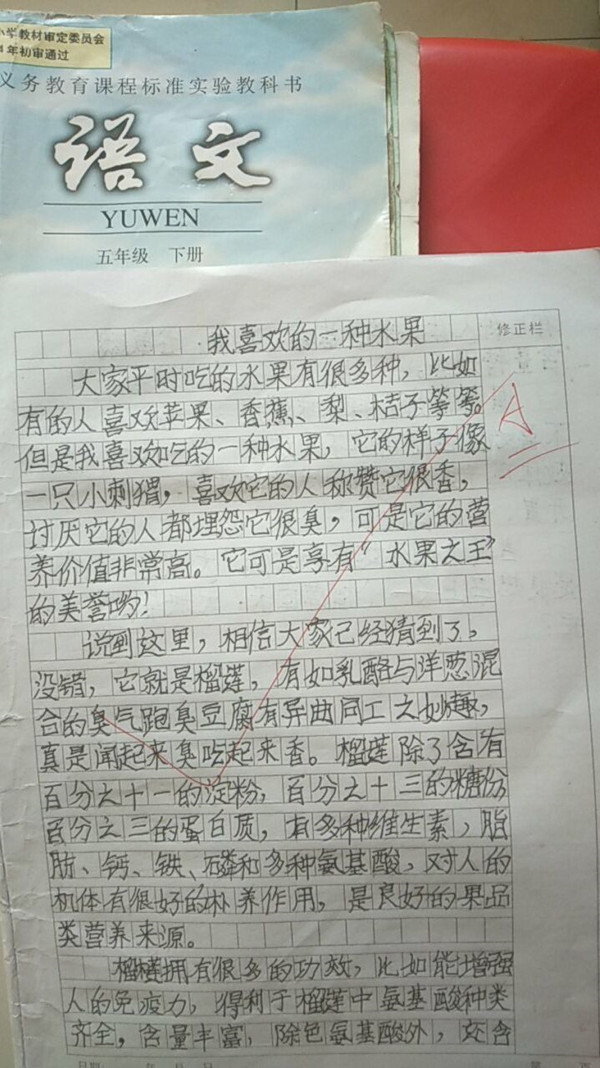 小学教材审定委员会
年初审通过
义务教育课程标准实验教科书
语文
YUWEN
五年级 下册
修正栏
我喜欢的一种水果
大家平时吃的水果有很多种，比如
有的人喜欢苹果、香蕉、梨、桔子等等。
但是我喜欢吃的一种水果，它的样子像
一只小刺猬，喜欢它的人称赞它很香，
讨厌它的人都埋怨它很臭，可是它的营
养价值非常高。它可是享有“水果之王”
的美誉哟！
A
说到这里，相信大家已经猜到了。
没错，它就是榴莲，有如乳酪与洋葱混
合的臭气跑臭豆腐有异曲同工之妙趣，
真是闻起来臭吃起来香。榴莲除了含有
百分之十一的淀粉，百分之十三的糖份
百分之三的蛋白质，有多种维生素，脂
肪、钙、铁、磷和多种氨基酸，对人的
机体有很好的补养作用，是良好的果品
类营养来源。
榴莲拥有很多的功效，比如能增强
人的免疫力，得利于榴莲中氨基酸种类
齐全，含量丰富，除色氨基酸外，还含
年 月 日
第 页